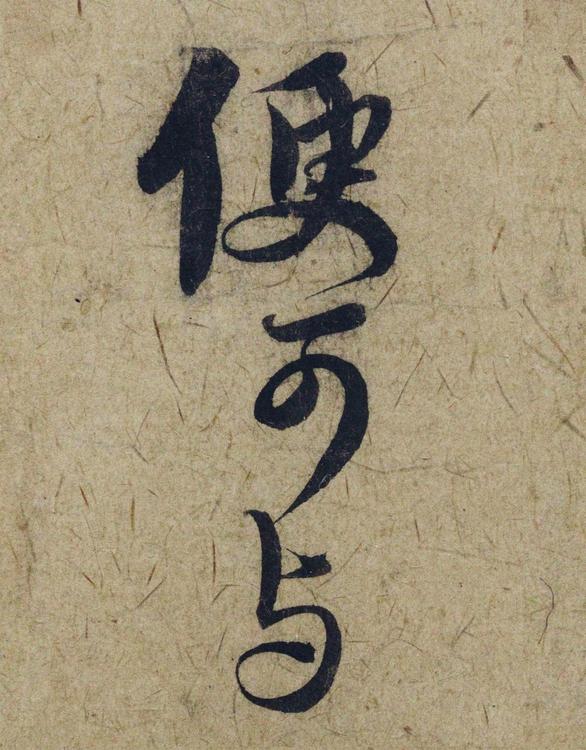 便可与